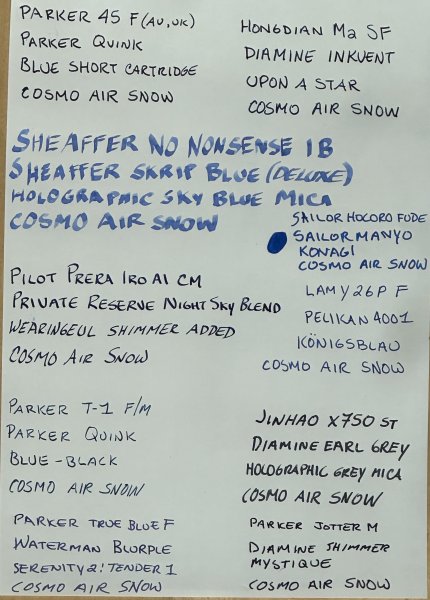 PARKER 45 F (AU, UK)
PARKER QUINK
BLUE SHORT CARTRIDGE
COSMO AIR SNOW
HONGDIAN M2 SF
DIAMINE INKVENT
UPON A STAR
COSMO AIR SNOW
SHEAFFER NO NONSENSE 1B
SHEAFFER SKRIP BLUE (DELUXE)
HOLOGRAPHIC SKY BLUE MICA
COSMO AIR SNOW
SAILOR HOCORO FUDE
SAILOR MANYO
KONAGI
COSMO AIR SNOW
PILOT PRERA IROAI CM
PRIVATE RESERVE NIGHT SKY BLEND
WEARINGEUL SHIMMER ADDED
COSMO AIR SNOW
LAMY 26P F
PELIKAN 4001
KÖNIGSBLAU
COSMO AIR SNOW
PARKER T-1 F/M
PARKER QUINK
BLUE-BLACK
COSMO AIR SNOW
JINHAO X750 ST
DIAMINE EARL GREY
HOLOGRAPHIC GREY MICA
COSMO AIR SNOW
PARKER TRUE BLUE F
WATERMAN BLURPLE
SERENITY 2:TENDER 1
COSMO AIR SNOW
PARKER JOTTER M
DIAMINE SHIMMER
MYSTIQUE
COSMO AIR SNOW